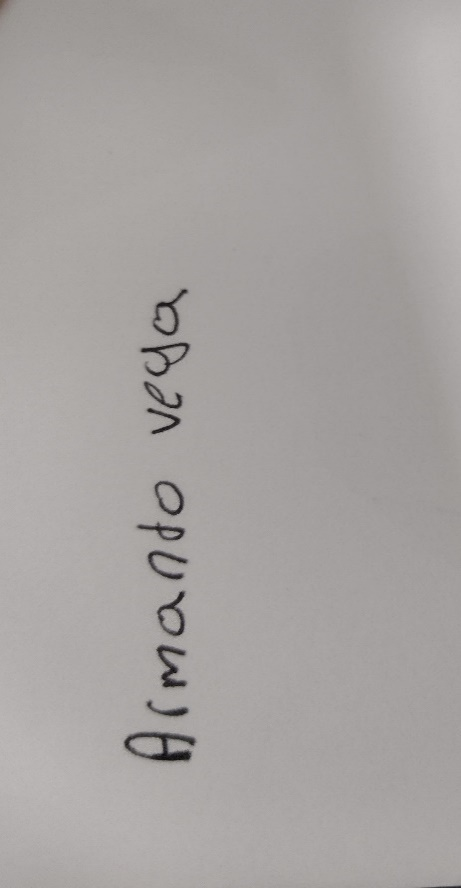 Armando vega